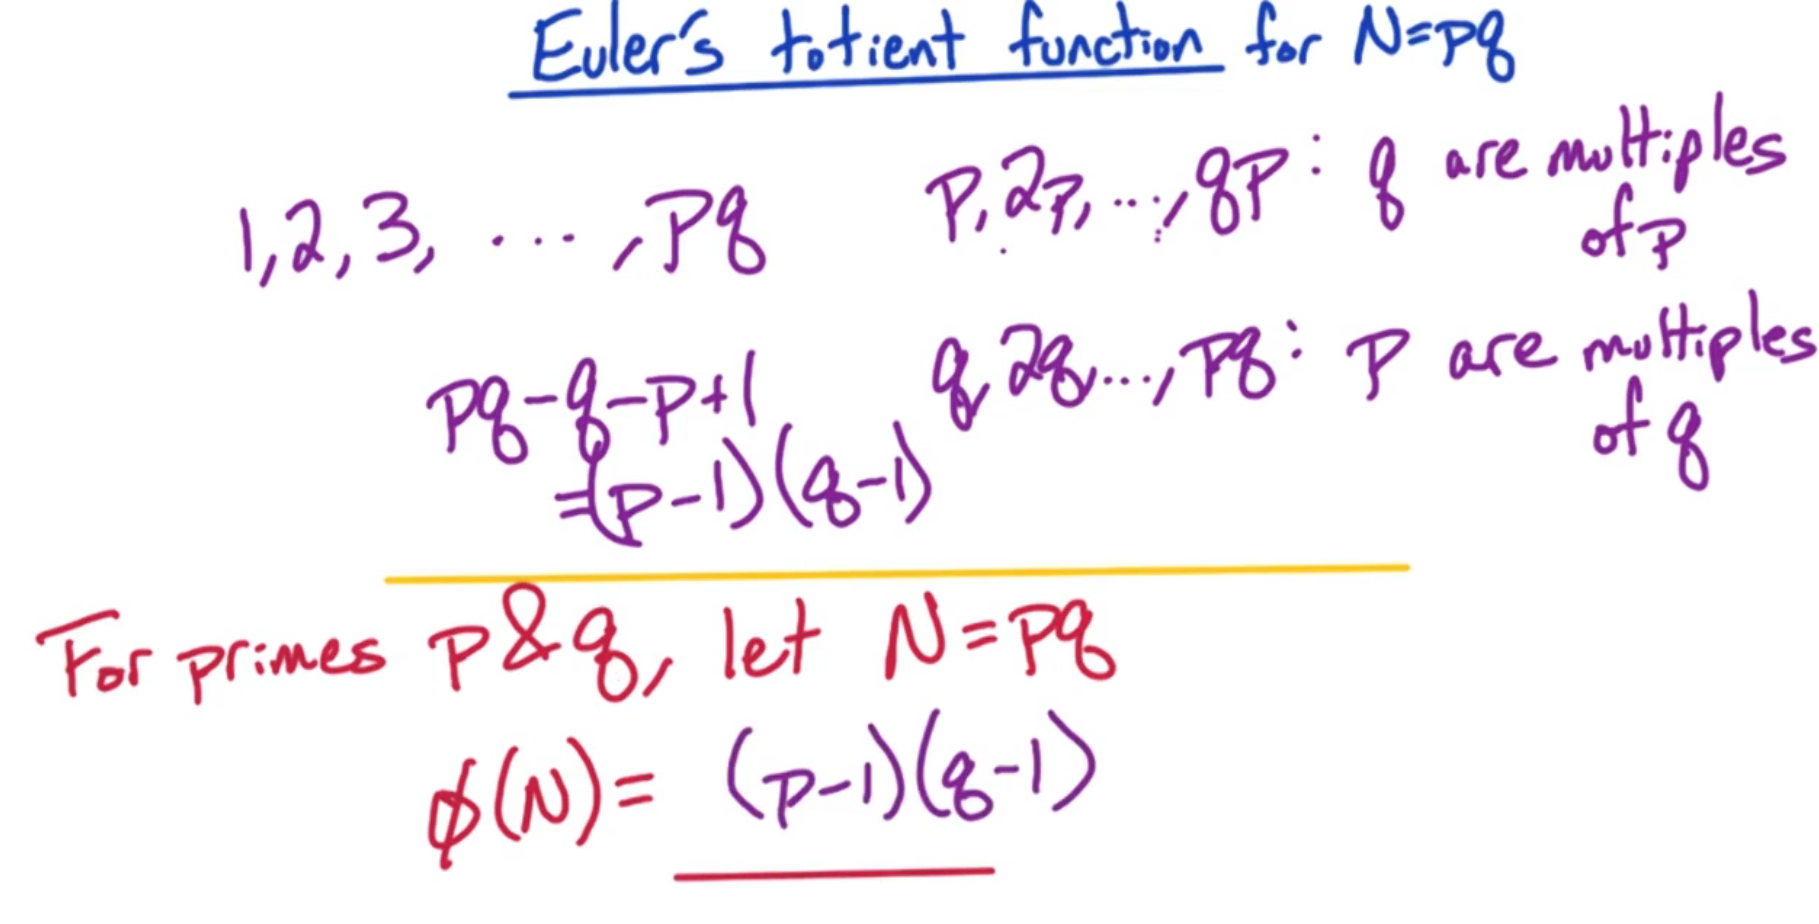 Euler's totient function for N=pq
1, 2, 3, ..., pq
p, 2p, ..., qp : q are multiples
of p
q, 2q, ..., pq : p are multiples
of q
pq-q-p+1
=(p-1)(q-1)
For primes p & q, let N=pq
ϕ(N)= (p-1)(q-1)